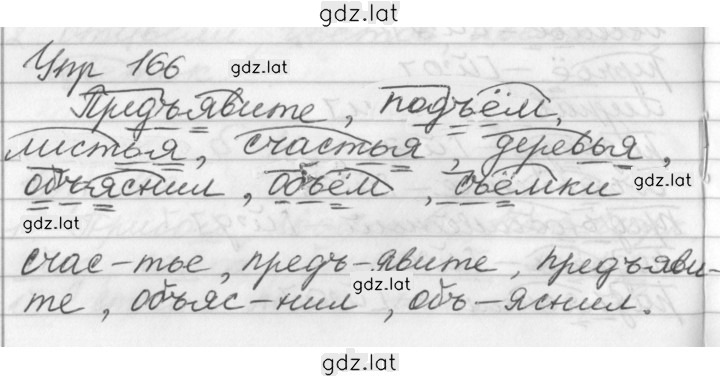 gdz.lat
Упр 166
gdz.lat
Предъявите, подъём,
листья, счастья, деревья,
объяснил, объём, съёмки
gdz.lat
gdz.lat
счас-тье, предъ-явите, предъяви-
те, объяс-нил, объ-яснил.
gdz.lat
gdz.lat